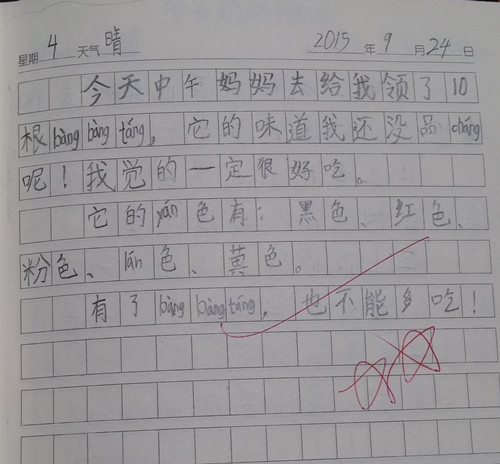 星期 4 天气 晴 2015 年 9 月 24 日
今天中午妈妈去给我领了10
根bàng bàng táng。它的味道我还没品cháng
呢！我觉的一定很好吃。
它的yán色有：黑色、红色、
粉色、lán色、黄色。
有了bàng bàng táng，也不能多吃！